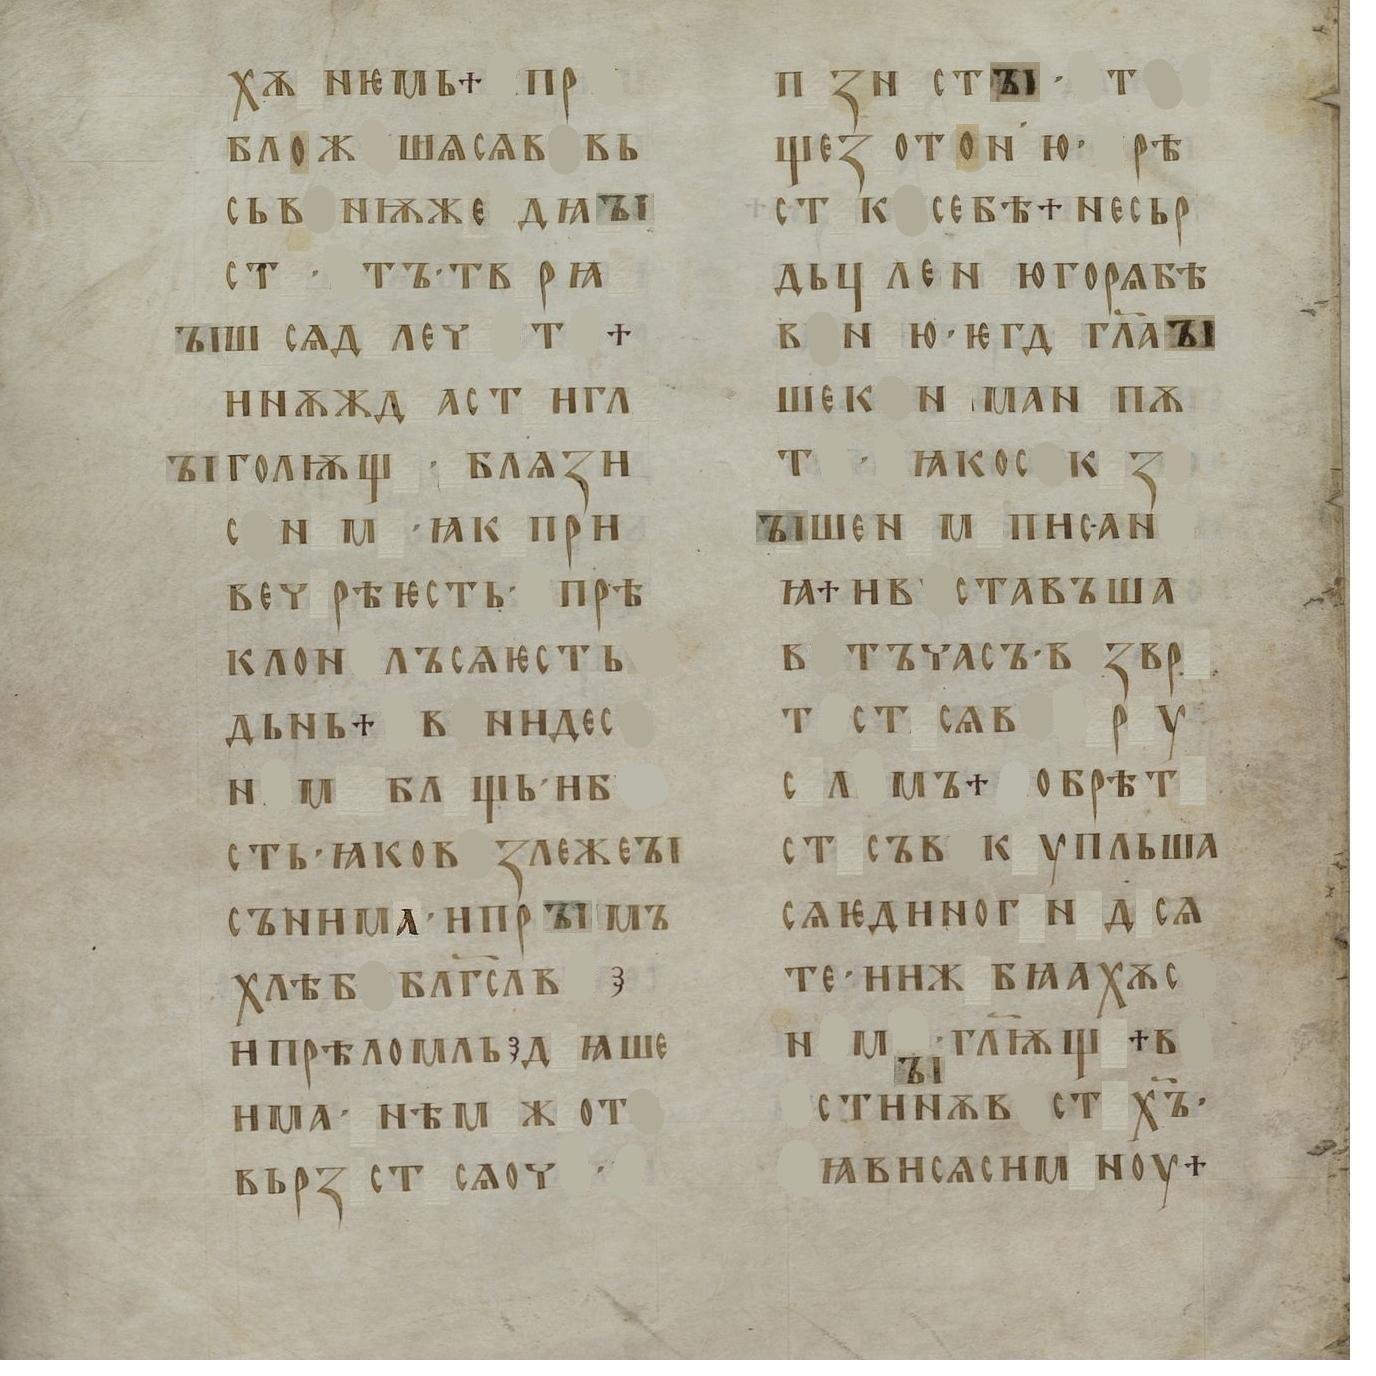 хѫ нѥмь+ пр
бл о ж шѧсѧв вь
сьв нѭже дꙗꙑ
ст · тъ·тв рꙗ
ꙑш сѧд леꙋ т +
ннѫжд аст нгл
ꙑголѭщ · блѧзн
с н м ·ꙗк при
веч рѣѥсть· прѣ
клон лъсѧѥсть
дьнь+ в нидес
н м бл щь·нб
сть·ꙗков злежеꙑ
съннма·нпрꙑ мъ
хлѣб благ҃слв з
нпрѣломльзд ꙗше
нма· нѣм ж от
вьрз ст сѧоч ·
п зн стꙑ · т
щез отон ю· рѣ
ст к себѣ+несьр
дьц лен югорѧбѣ
в н ю·ѥгд гл҃аꙑ
шек н ман пѫ
т · ꙗкос к з
ꙑшен м пнсан
ꙗ+нв ставъша
в тъчасъ·в звр
т ст сѧв р у
с л мъ+ обрѣт
ст съв к упльша
сѧѥднног н д сѧ
те·ннж бꙗахѫс
н м ·гл҃ѭщ +в
ꙑ
стннѫв ст х҃ъ·
ꙗвнсѧснм ноу+